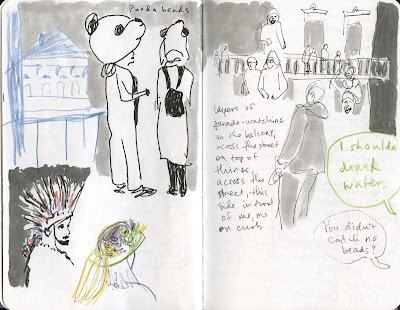 Panda heads
layers of
parade-watching
on the balcony,
across the street
on top of
things
across the
street, this
side in front
of me, me
on curb
I shoulda
drank
water.
You didn't
catch no
beads?